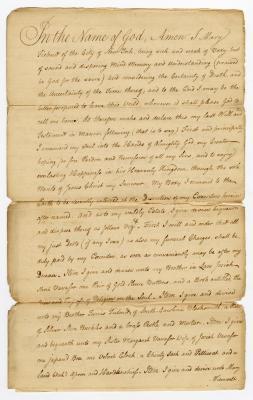 In the Name of God, Amen I Mary
of the City of New York, being sick and weak of Body but
of sound and disposing Mind Memory and Understanding (praised
be God for the same) and considering the Certainty of Death and
the Uncertainty of the Time thereof, and to the End I may be the
better prepared to leave this World whenever it shall please God to
call me hence. Do therefore make and declare this my last Will and
Testament in Manner following (that is to say) First and principally
I commend my Soul into the Hands of Almighty God my Creator
hoping for free Pardon and Remission of all my Sins, and to enjoy
everlasting Happiness in his Heavenly Kingdom, through the
Merits of Jesus Christ my Saviour. My Body I commit to the
Earth to be decently interred at the Discretion of my Executors herein
after named. And as to my worldly Estate I give devise bequeath
and dispose thereof as follows First I will and order that all
my just Debts (if any I owe) as also my funeral Charges shall be
duly paid by my Executors as soon as conveniently may be after my
Decease. Item I give and devise unto my Brother in Law
one Pair of Gold Sleeve Buttons, and a Book entitled the
Rise and Progress of Religion in the Soul. Item I give and devise
unto my Brother of South Carolina a Pair
of Silver Shoe Buckles and a Item I give
and bequeath unto my Sister Margaret Wife of
one Velvet Cloak a and
Apron and Handkerchiefs. Item I give and devise unto Mary